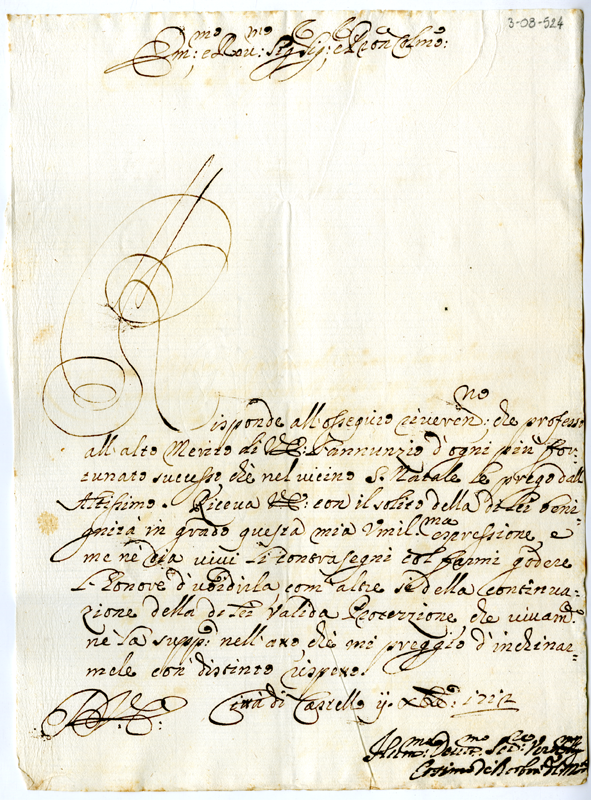 3-08-524
Em:mo e Rev:mo Sig: Sig: e Pron Colmo:
Risponde all'ossequio riveren:mo che professo
all'alto Merito di VE: l'annunzio d'ogni piu' for-
tunato sucesso che nel vicino S. Natale le prego dall'
Altissimo. Riceva VE: con il solito della di lei beni-
gnità in grado questa mia Umil:ma espressione, e
me ne dia vivi li contrasegni col farmi godere
L'Honore d'ubidirla, com' altre sì della continua-
zione della di lei valida Protezzione che vivam:e
ne la supp:o nell'atto, che mi preggio d'inchinar-
mele con distinto rispetto.
Di VE: Città di Castello
Hum:mo Devot:mo